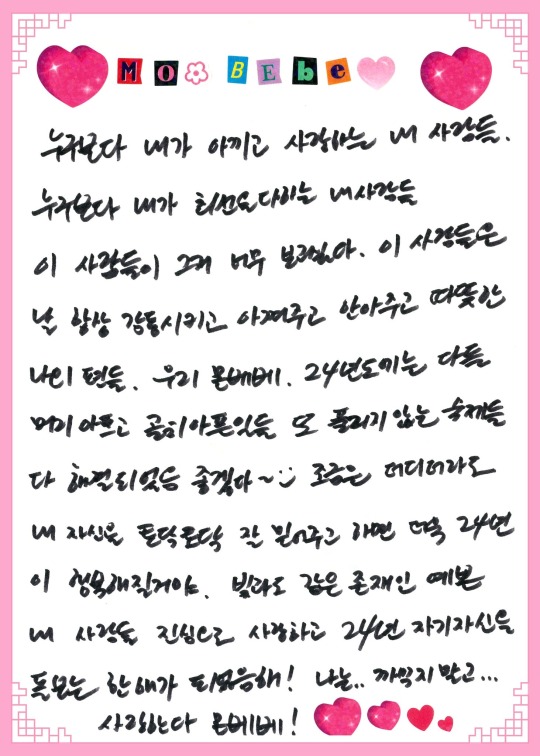 MO BEbe
누구보다 내가 아끼고 사랑하는 내 사람들.
누구보다 내가 최선을 다하는 내사람들
이 사람들이 그저 너무 보고싶다. 이 사람들은
날 항상 감동시키고 아껴주고 안아주고 따뜻한
나의 편들. 우리 몬베베. 24년도에는 다들
머리아프고 골치아픈일들 또 풀리지 않는 숙제들
다 해결되었음 좋겠다~ 조금은 더디더라도
내 자신을 토닥토닥 잘 믿어주고 하면 더욱 24년
이 행복해질거야. 빛과도 같은 존재인 예쁜
내 사람들 진심으로 사랑하고 24년 자기자신을
돌보는 한 해가 되었음해! 나는.. 까먹지 말고...
사랑한다 몬베베!